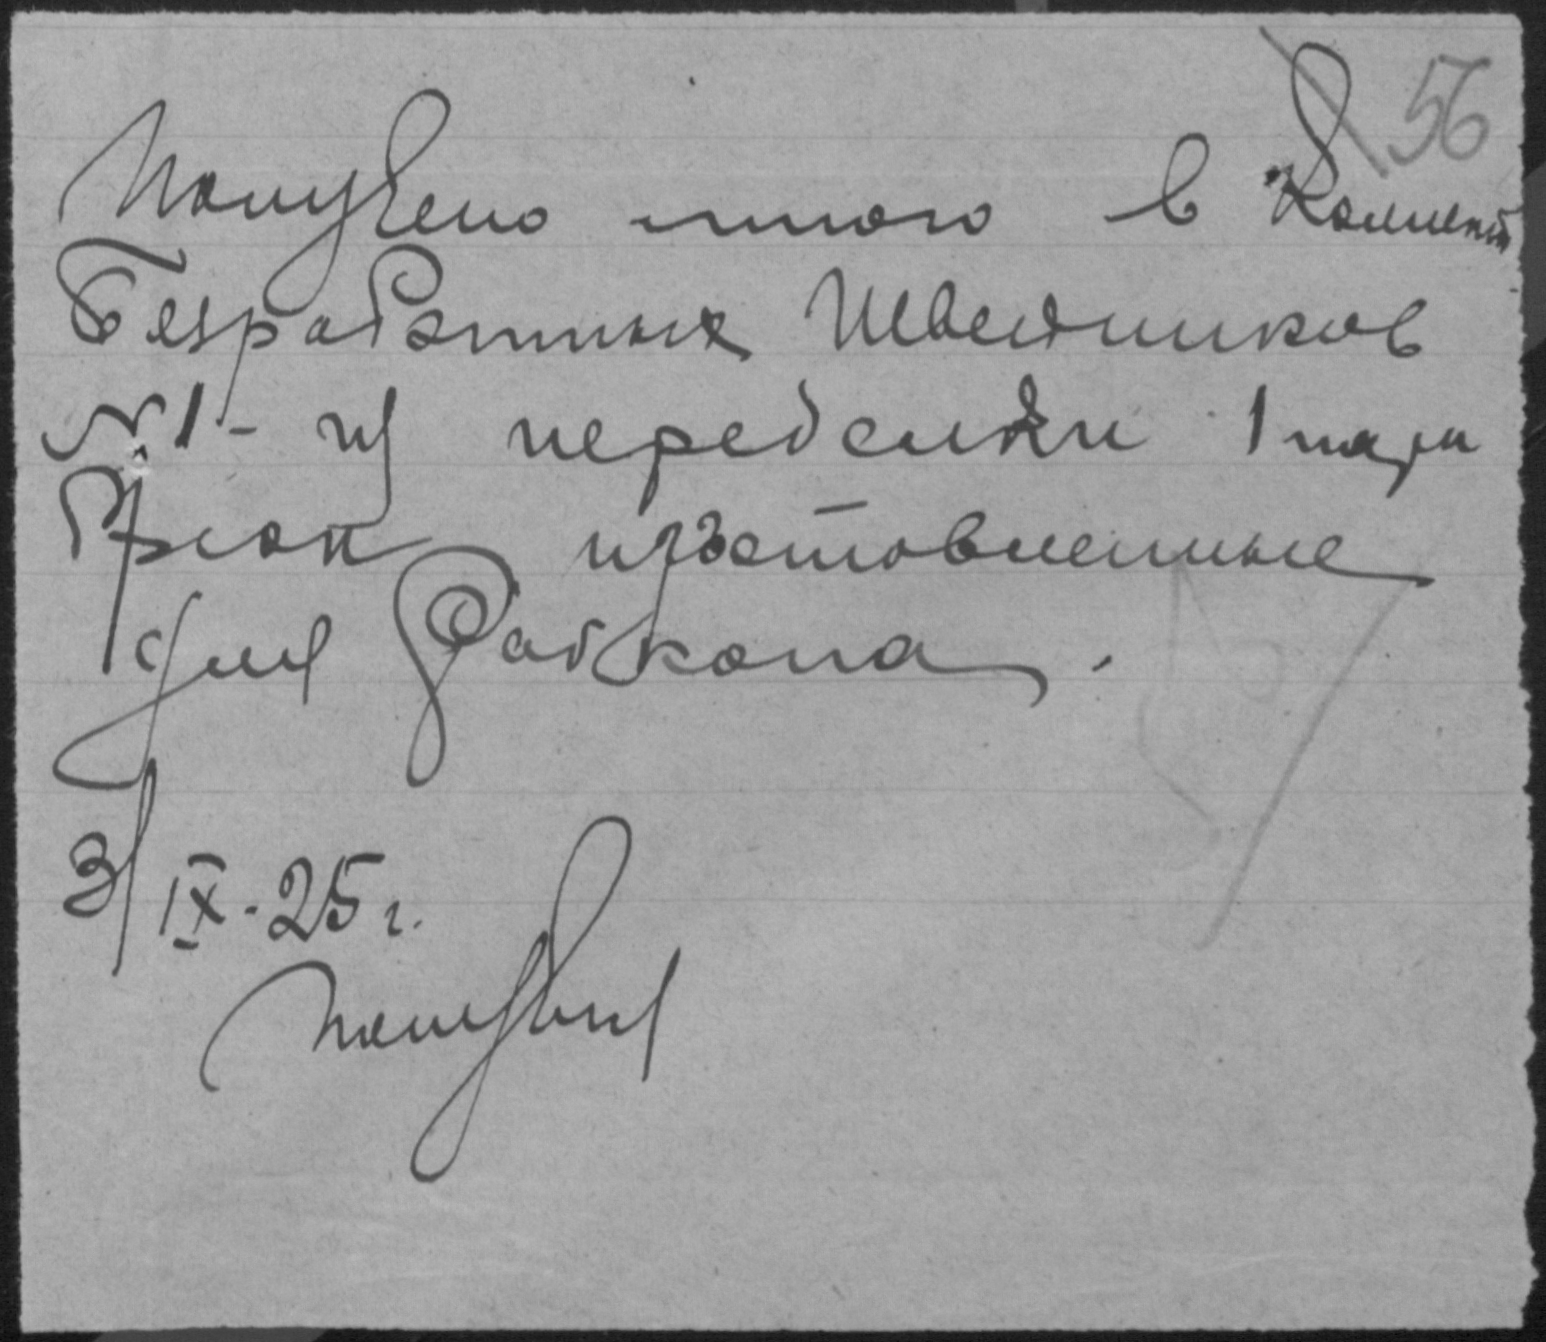 56
Получено мною в Коллект.
Безработных Швейников
№1 - из переделки 1 пара
Брюк изготовленные
для Рабкопа.
3/IX-25 г.